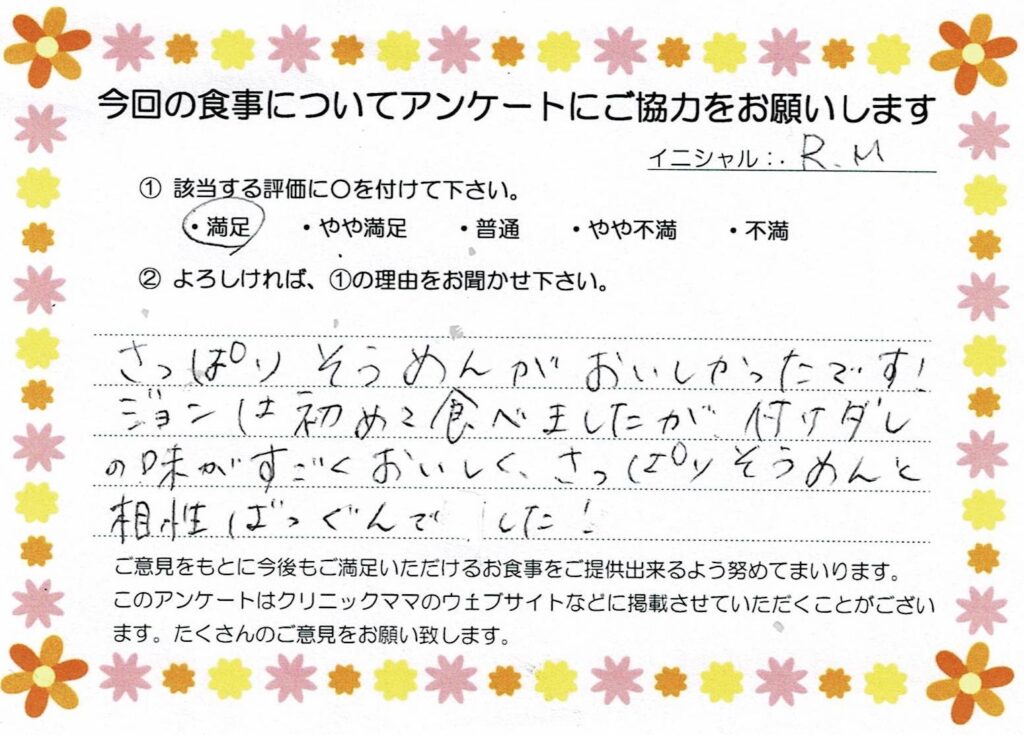 今回の食事についてアンケートにご協力をお願いします
イニシャル：. R.M
① 該当する評価に〇を付けて下さい。
・満足 ・やや満足 ・普通 ・やや不満 ・不満
② よろしければ、①の理由をお聞かせ下さい。
さっぱりそうめんがおいしかったです!
ジョンは初めて食べましたが、付けダレ
の味がすごくおいしく、さっぱりそうめんと
相性ばつぐんでした!
ご意見をもとに今後もご満足いただけるお食事をご提供出来るよう努めてまいります。
このアンケートはクリニックママのウェブサイトなどに掲載させていただくことがござい
ます。たくさんのご意見をお願い致します。